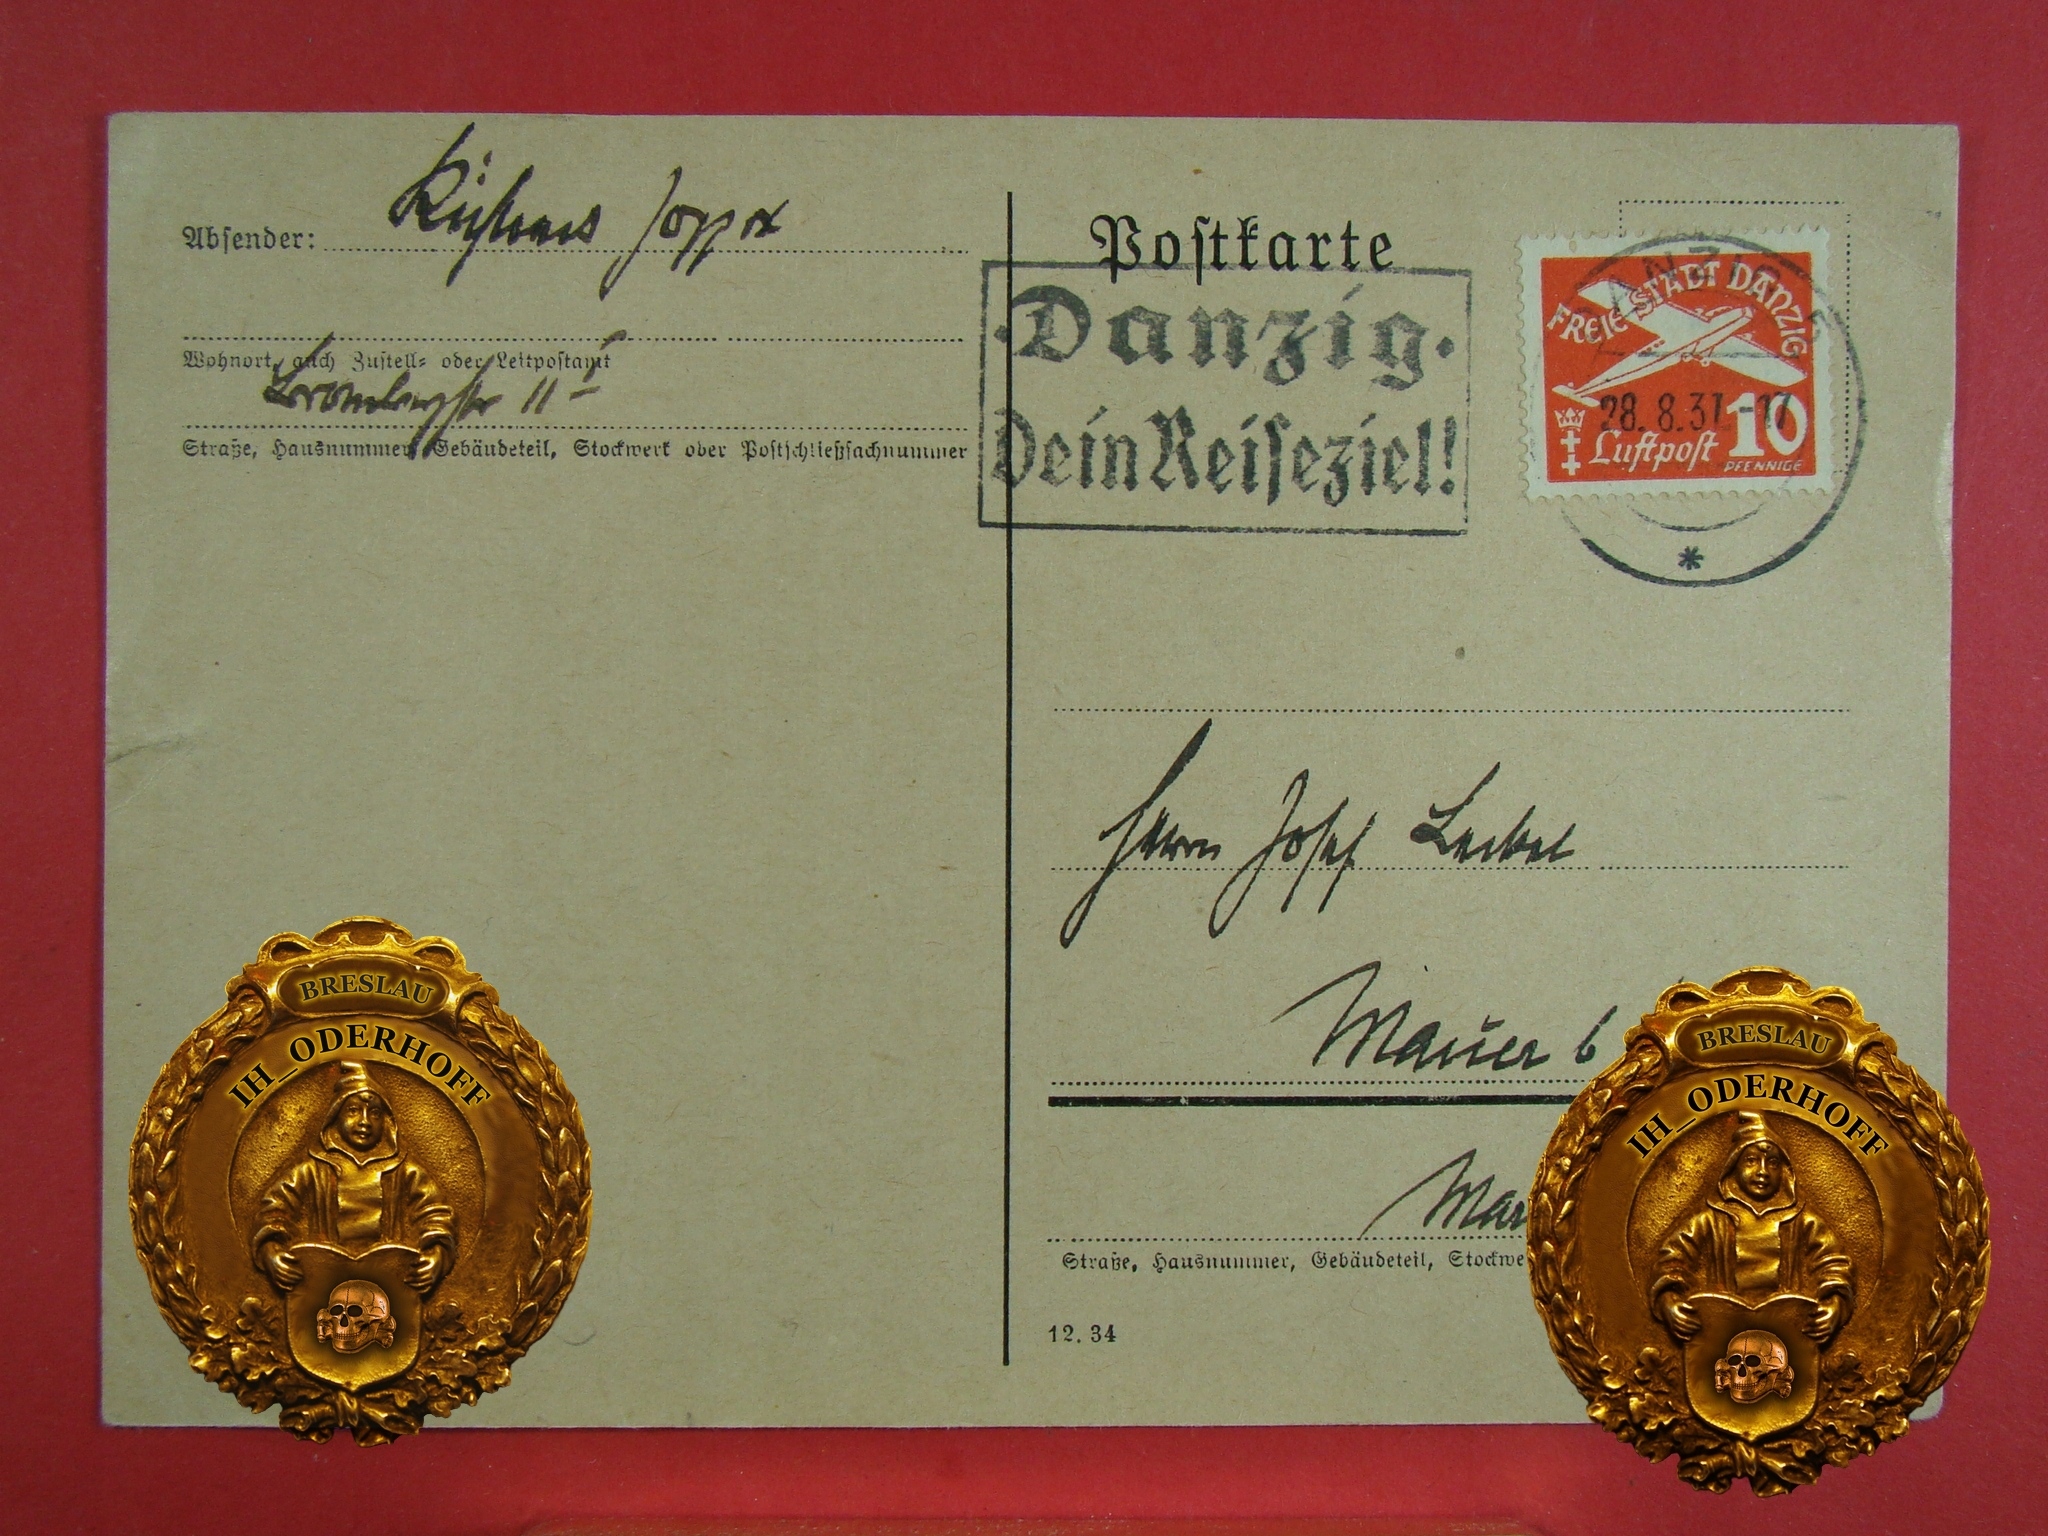 Postkarte
Absender: Zoppot
Wohnort, auch Zustell- oder Leitpostamt
11
Straße, Hausnummer, Gebäudeteil, Stockwerk oder Postschließfachnummer
·Danzig·
Dein Reiseziel!
DANZIG
FREIE STADT DANZIG
28.8.37.-17
Luftpost 10
PFENNIGE
*
Herrn Josef
Mauer b
Straße, Hausnummer, Gebäudeteil, Stockwe
12. 34
BRESLAU
IH_ODERHOFF
BRESLAU
IH_ODERHOFF